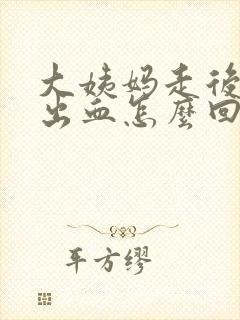 大姨妈走後
出血怎麼回
平方缪